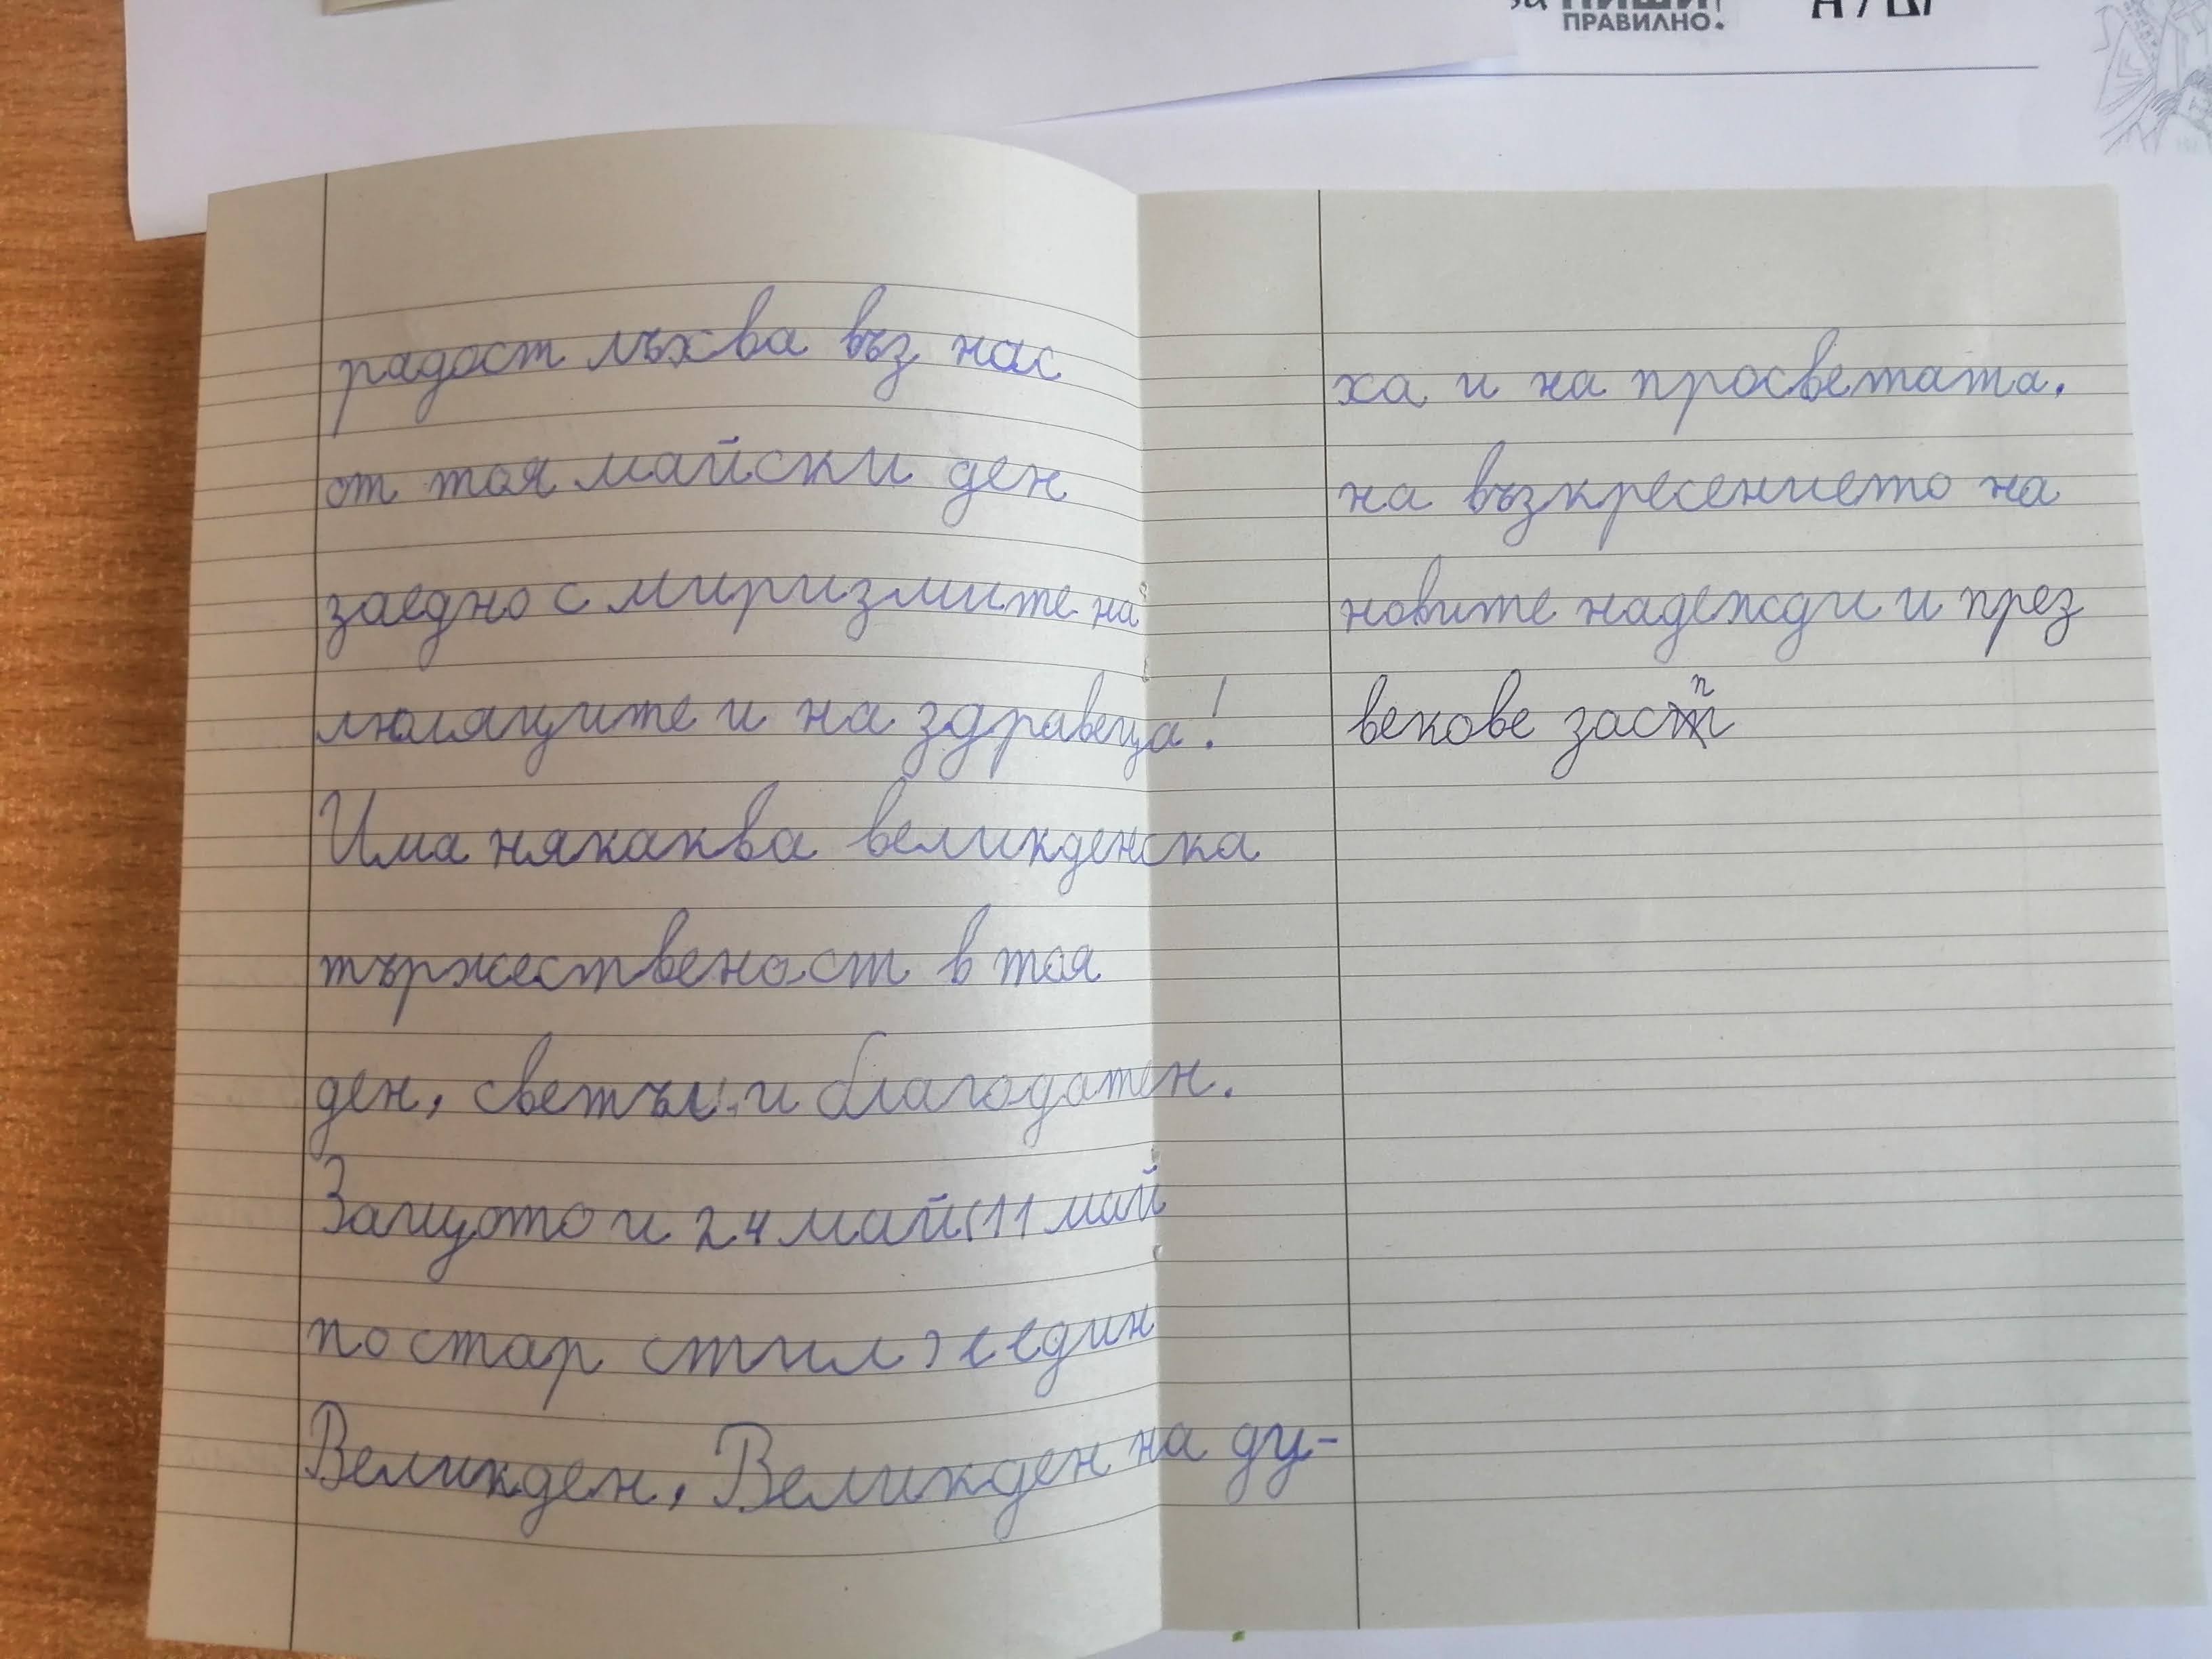 за ПИШИ!
ПРАВИЛНО.
радост лъхва въз нас
от тоя майски ден
заедно с миризмите на
люляците и на здравеца!
Има някаква великденска
тържественост в тоя
ден, светъл и благодатен.
Защото и 24 май (11 май
по стар стил) е един
Великден, Великден на ду-
ха и на просветата,
на възкресението на
новите надежди и през
векове засп